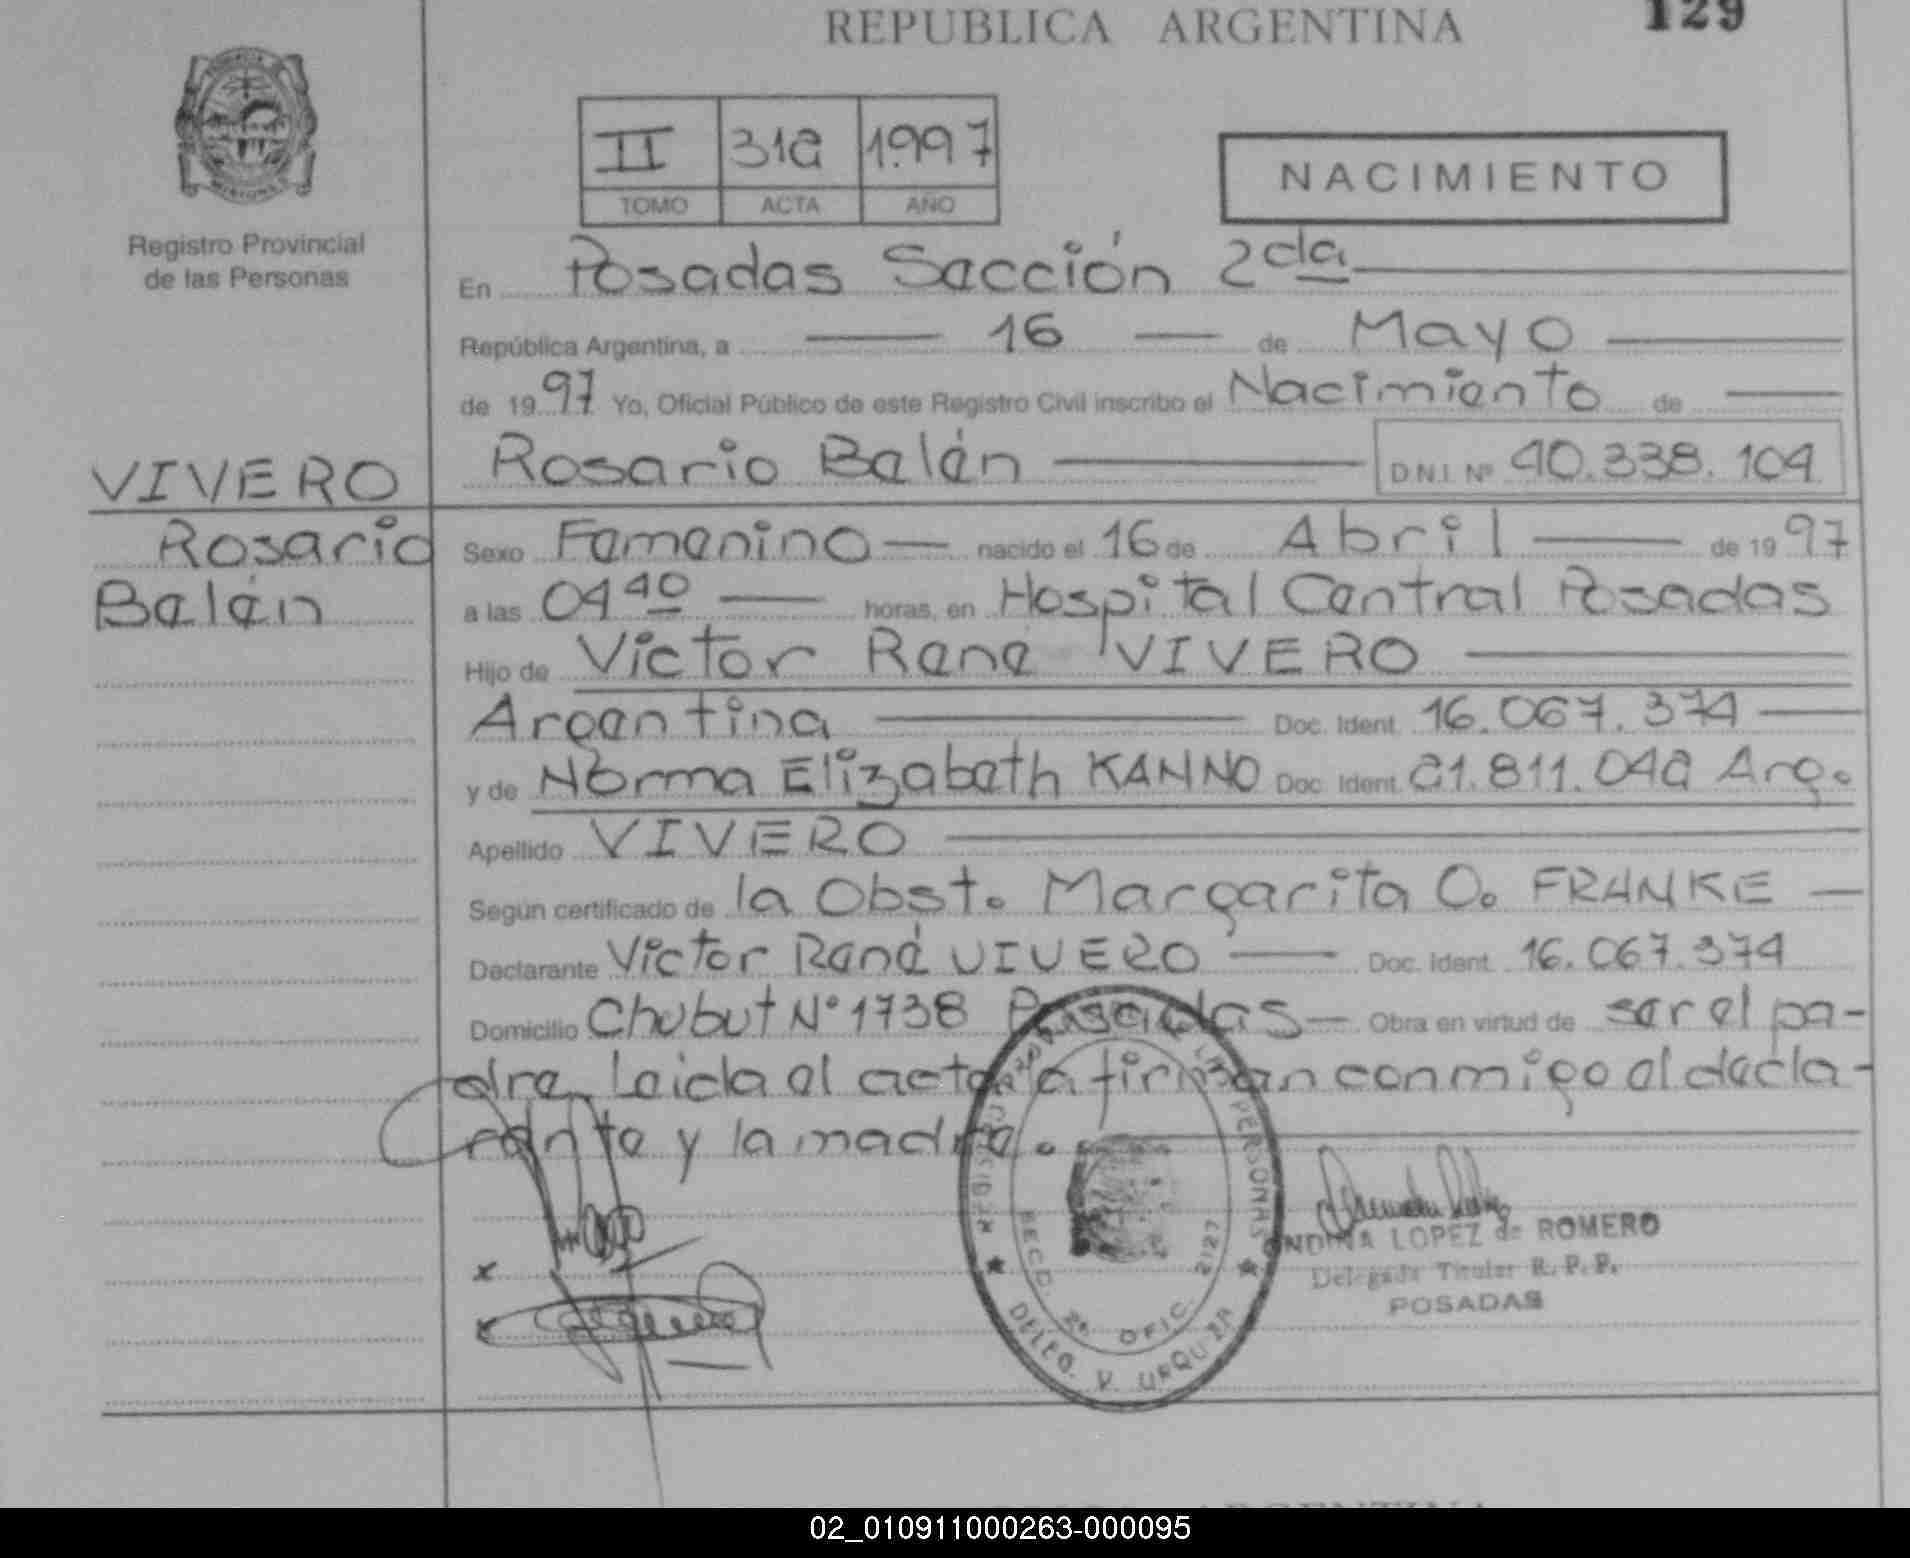 REPUBLICA ARGENTINA
129
Registro Provincial
de las Personas
II 312 1.997
TOMO ACTA AÑO
NACIMIENTO
En Posadas Sección 2da
República Argentina, a 16 de Mayo
de 1997 Yo, Oficial Público de este Registro Civil inscribo el Nacimiento de
VIVERO
Rosario
Belén
Rosario Belén D.N.I. Nº 40.338.104
Sexo Femenino nacido el 16 de Abril de 1997
a las 04 40 horas, en Hospital Central Posadas
Hijo de Victor René VIVERO
Argentina Doc. Ident. 16.067.374
y de Norma Elizabeth KANNO Doc. Ident. 21.811.042 Arg.
Apellido VIVERO
Según certificado de la Obst. Margarita O. FRANKE
Declarante Victor René VIVERO Doc. Ident. 16.067.374
Domicilio Chubut Nº 1738 Posadas Obra en virtud de ser el pa-
dre. Leida el acta la firman conmigo el decla-
rante y la madre.
DE LAS PERSONAS
SECD. 2ª OFIC. 2127
DELEG. V. URQUIZA
LOPEZ de ROMERO
Delegada Titular R.P.P.
POSADAS
02_010911000263-000095